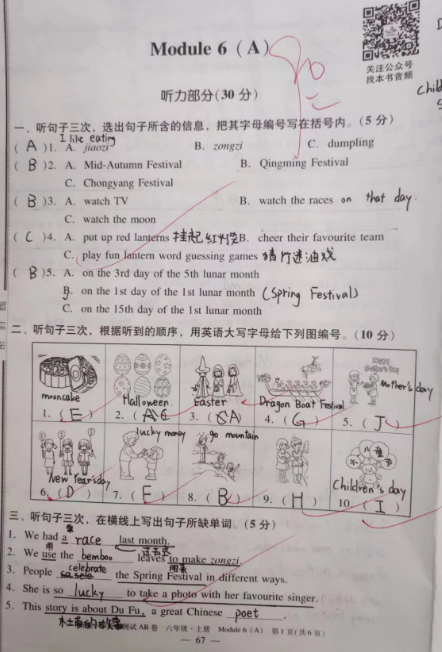 Module 6 (A)
关注公众号
找本书音频
听力部分(30 分)
一、听句子三次，选出句子所含的信息，把其字母编号写在括号内。(5 分)
I like eating
( A )1. A. jiaozi B. zongzi C. dumpling
( B )2. A. Mid-Autumn Festival B. Qingming Festival
C. Chongyang Festival
( B )3. A. watch TV B. watch the races on that day.
C. watch the moon
( C )4. A. put up red lanterns 挂起红灯笼 B. cheer their favourite team
C. play fun lantern word guessing games
( B )5. A. on the 3rd day of the 5th lunar month
B. on the 1st day of the 1st lunar month (Spring Festival)
C. on the 15th day of the 1st lunar month
二、听句子三次，根据听到的顺序，用英语大写字母给下列图编号。(10 分)
mooncake Halloween Easter Dragon Boat Festival Mother's day
1. ( E ) 2. ( C ) 3. ( A ) 4. ( G ) 5. ( J )
lucky money go mountain
New Year's day Children's day
6. ( D ) 7. ( F ) 8. ( B ) 9. ( H ) 10. ( I )
三、听句子三次，在横线上写出句子所缺单词。(5 分)
1. We had a race last month.
用 过去式
2. We use the bemboo leaves to make zongzi.
3. People celebrate the Spring Festival in different ways.
4. She is so lucky to take a photo with her favourite singer.
5. This story is about Du Fu, a great Chinese poet.
测试AB卷 六年级·上册 Module 6 (A) 第1页(共6页)
— 67 —